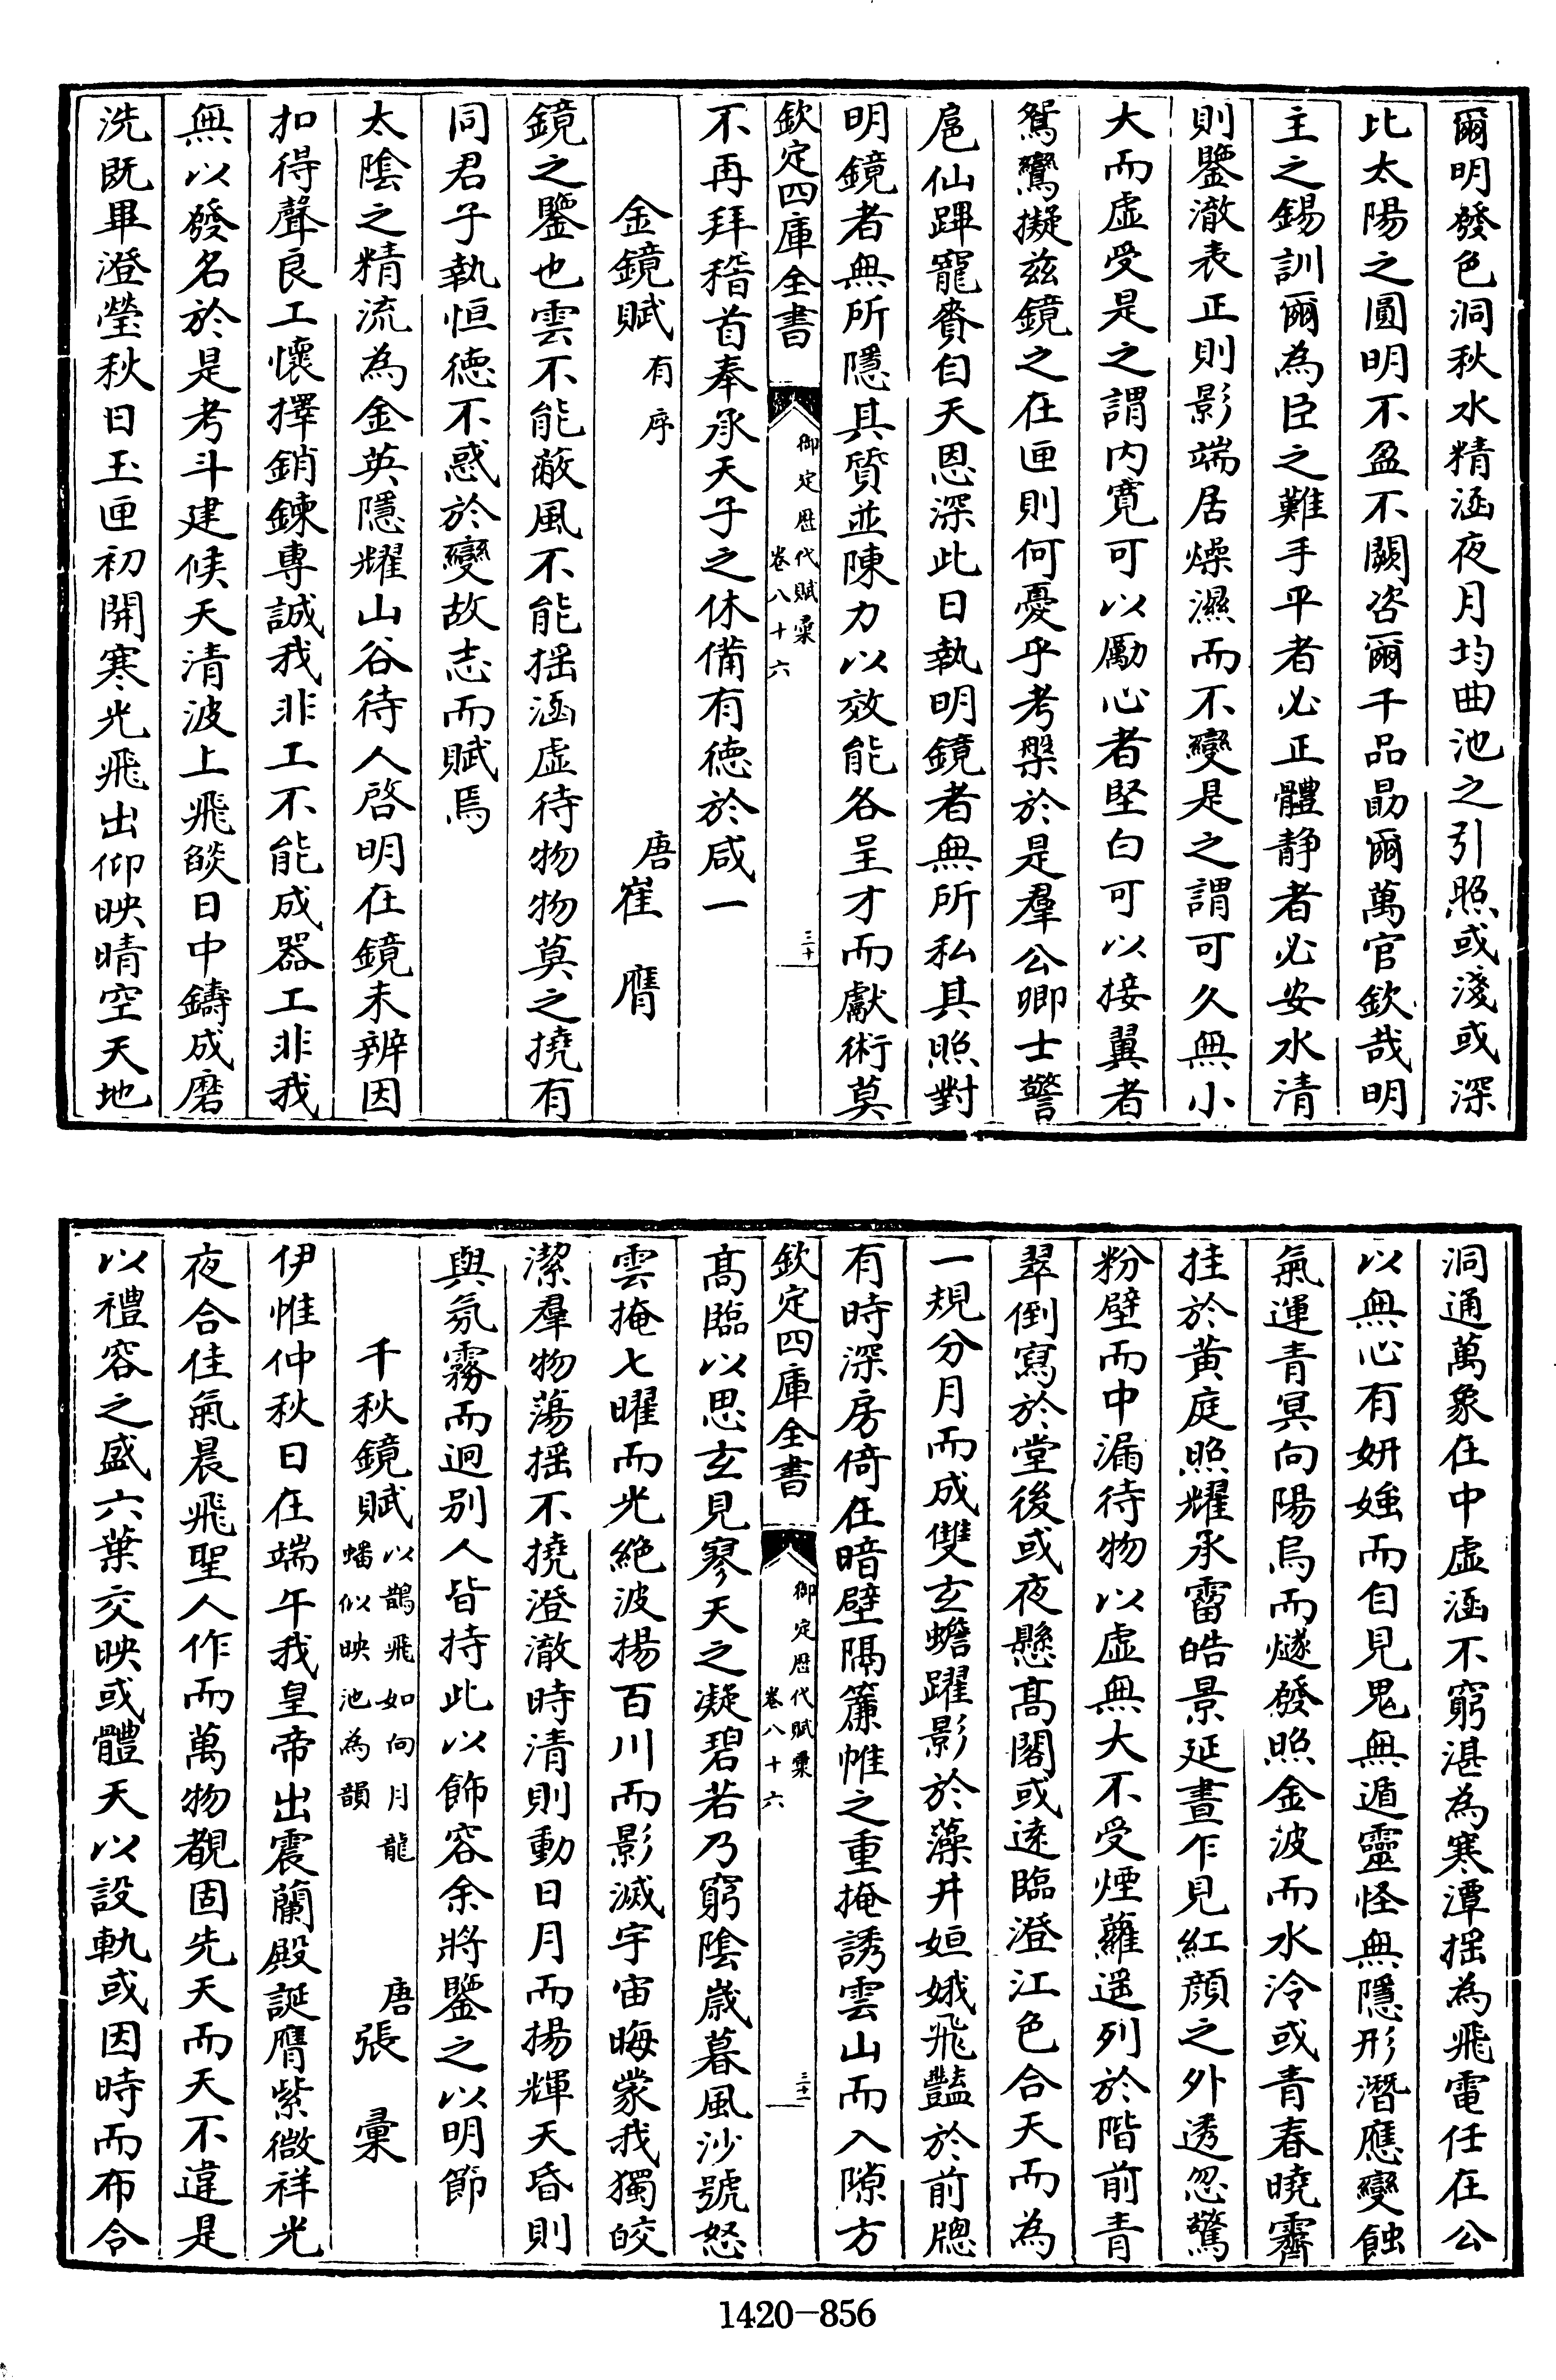 爾明發色洞秋水精涵夜月均曲池之引照或淺或深
比太陽之圓明不盈不闕咨爾千品勗爾萬官欽哉明
主之錫訓爾為臣之難手平者必正體靜者必安水清
則鑒澈表正則影端居燥濕而不變是之謂可久無小
大而虛受是之謂內寬可以勵心者堅白可以接翼者
鴛鸞擬茲鏡之在匣則何憂乎考槃於是羣公卿士警
扈仙蹕寵賚自天恩深此日執明鏡者無所私其照對
明鏡者無所隱其質並陳力以效能各呈才而獻術莫
欽定四庫全書
御定歷代賦彙
卷八十六
三十
不再拜稽首奉承天子之休備有德於咸一
金鏡賦有序
唐崔膺
鏡之鑒也雲不能蔽風不能揺涵虛待物物莫之撓有
同君子執恒德不惑於變故志而賦焉
太陰之精流為金英隱耀山谷待人啓明在鏡未辨因
扣得聲良工懷擇銷鍊專誠我非工不能成器工非我
無以發名於是考斗建候天清波上飛燄日中鑄成磨
洗既畢澄瑩秋日玉匣初開寒光飛出仰映晴空天地
洞通萬象在中虛涵不窮湛為寒潭揺為飛電任在公
以無心有妍媸而自見鬼無遁靈怪無隱形潛應變蝕
氣運青冥向陽烏而燧發照金波而水泠或青春曉霽
挂於黃庭照耀承霤皓景延晝乍見紅顔之外透忽驚
粉壁而中漏待物以虛無大不受煙蘿遥列於階前青
翠倒寫於堂後或夜懸高閣或遠臨澄江色合天而為
一規分月而成雙玄蟾躍影於藻井姮娥飛豔於前牕
有時深房倚在暗壁隔簾帷之重掩誘雲山而入隙方
欽定四庫全書
御定歷代賦彙
卷八十六
三十一
高臨以思玄見寥天之凝碧若乃窮陰歲暮風沙號怒
雲掩七曜而光絶波揚百川而影滅宇宙晦蒙我獨皎
潔羣物蕩揺不撓澄澈時清則動日月而揚輝天昏則
與氛霧而迥别人皆持此以飾容余將鑒之以明節
千秋鏡賦以鵲飛如向月龍
蟠似映池為韻
唐張彚
伊惟仲秋日在端午我皇帝出震蘭殿誕膺紫微祥光
夜合佳氣晨飛聖人作而萬物覩固先天而天不違是
以禮容之盛六葉交映或體天以設軌或因時而布令
1420-856